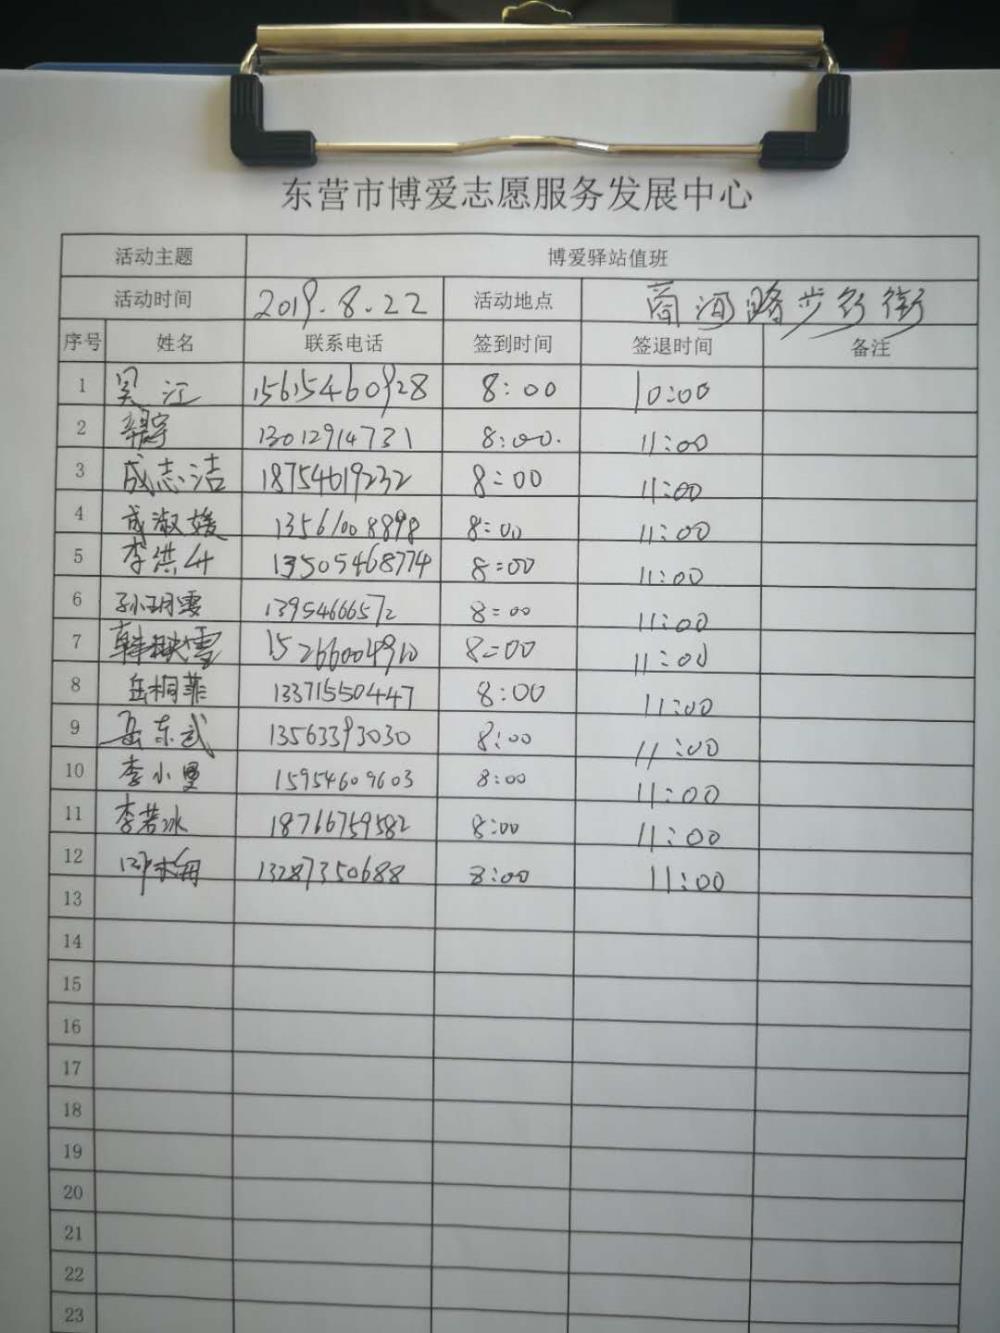 东营市博爱志愿服务发展中心
活动主题 博爱驿站值班
活动时间 2019.8.22 活动地点 商河路步行街
序号 姓名 联系电话 签到时间 签退时间 备注
1 吴江 15615460928 8:00 10:00
2 13012914731 8:00. 11:00
3 成志洁 18754619232 8:00 11:00
4 成淑媛 13561008898 8:00 11:00
5 李洪升 13505468774 8:00 11:00
6 孙玥雯 13954666572 8:00 11:00
7 韩映雪 15266004910 8:00 11:00
8 岳桐菲 13371550447 8:00 11:00
9 岳东武 13563393030 8:00 11:00
10 李小曼 15954609603 8:00 11:00
11 李若冰 18766759582 8:00 11:00
12 13287350688 8:00 11:00
13
14
15
16
17
18
19
20
21
22
23